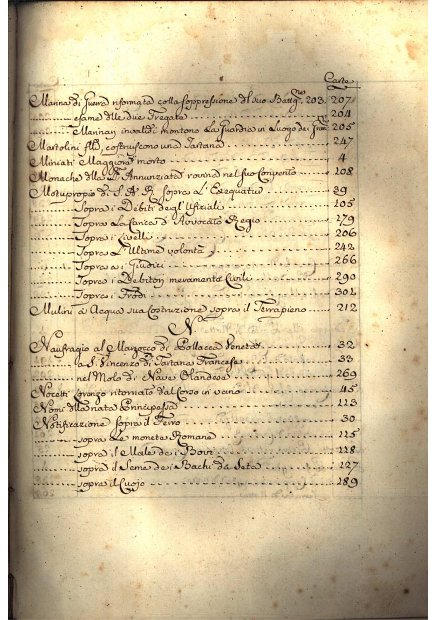 Carte
Marina di Guerra riformata colla soppressione del suo Battagne 203. 207
esame delle due Fregate 204
Marinary invalidi montono La Guardia in Luogo dei 205
Martolini fllo, costruiscono una Tartana 247
Miniati Maggiore morto 4
Monache della SS. Annunziata rovina nel suo Convento 108
Motuproprio di S. A. R. sopra L'Exequatur 89
Sopra i Debiti degl'Ufiziali 105
Sopra La Carica d'Avvocato Regio 179
Sopra i Livelli 206
Sopra L'Ultime volontà 242
Sopra a i Giudici 266
Sopra i Debitori meramente Civili 290
Sopra i Frodi 301
Mulini a Acqua sua Costruzione sopra il Terrapieno 212
N
Naufragio al Marzocco di Pollacca Veneta 32
la S. Vincenzo di Tartana Francese 33
nel Molo di Nave Olandese 269
Nocetti Lorenzo ritornato dal Corso in veno 45
Nomi della nata Principessa 113
Notificazione Sopra il Ferro 30
sopra Le monete Romane 115
sopra il Male dei Bovi 118
sopra il Seme dei Bachi da Seta 127
sopra il Cuojo 189